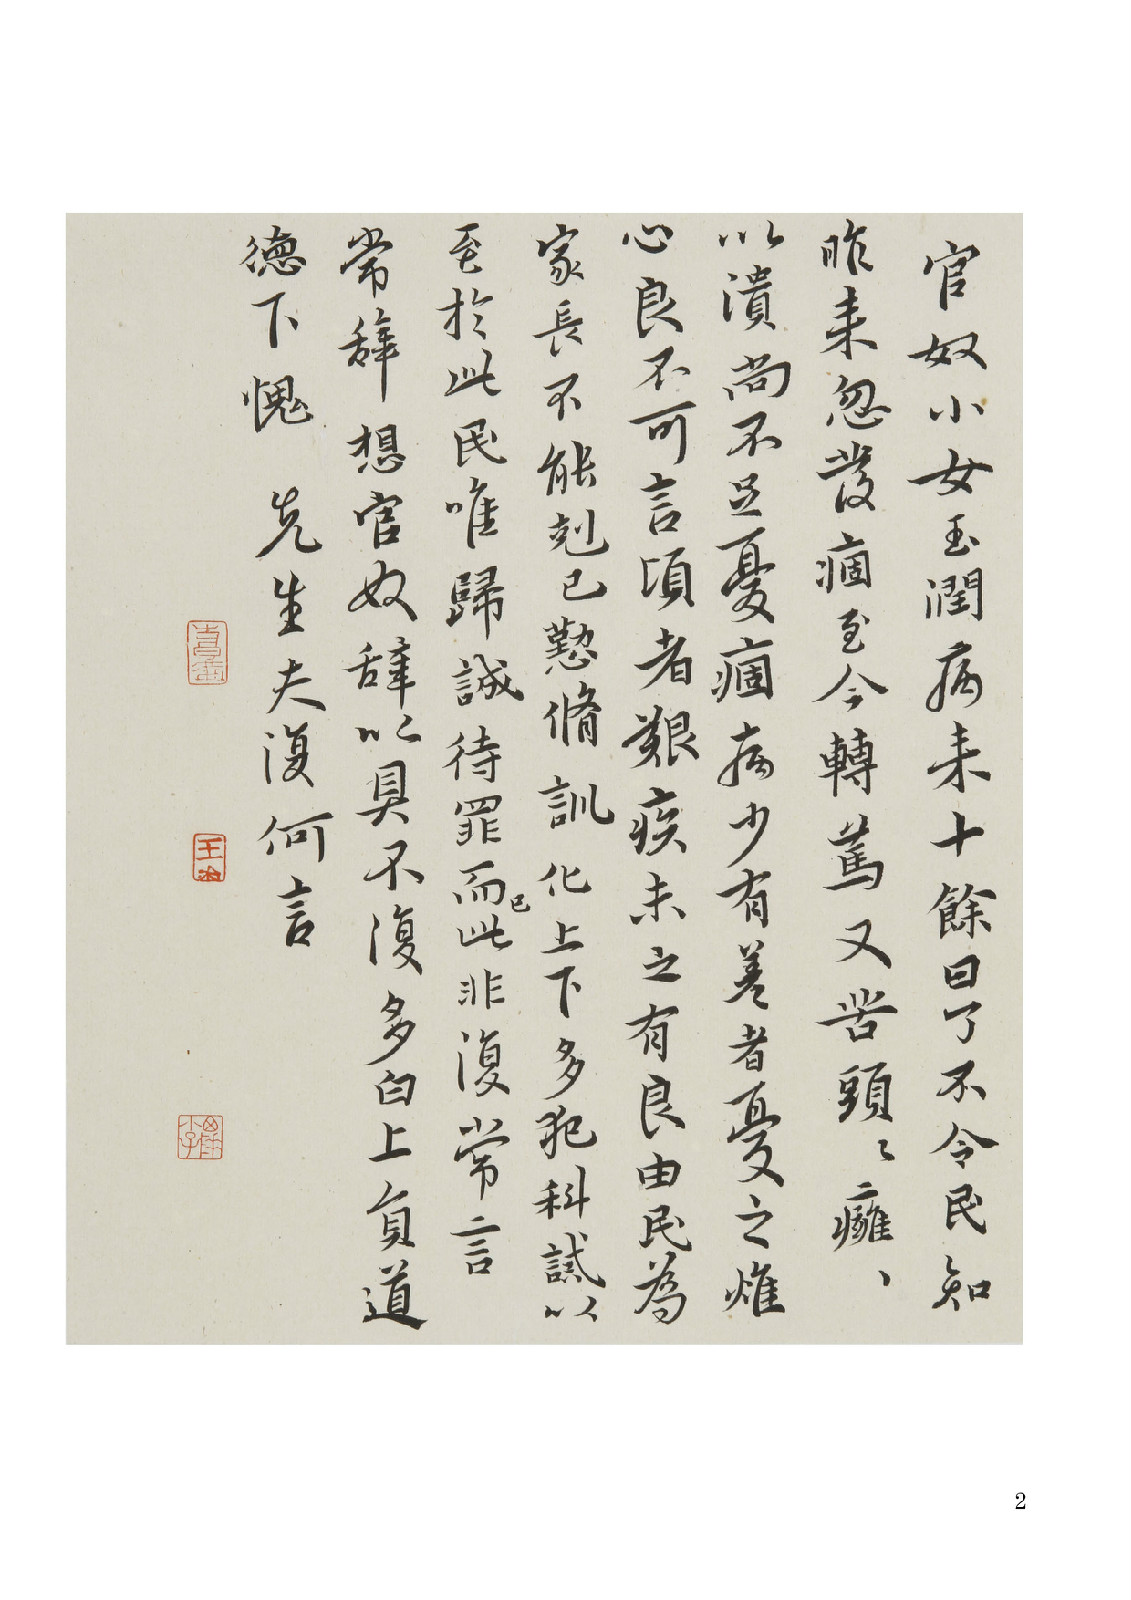 官奴小女玉潤病来十餘日了不令民知
昨来忽發痼至今轉篤又苦頭〻癰、
以潰尚不足憂痼病少有差者憂之燋
心良不可言頃者艱疾未之有良由民為
家長不能剋已懃脩訓化上下多犯科誡以
至於此民唯歸誠待罪而已此非復常言
常辞想官奴辞以具不復多白上負道
德下愧先生夫復何言
2